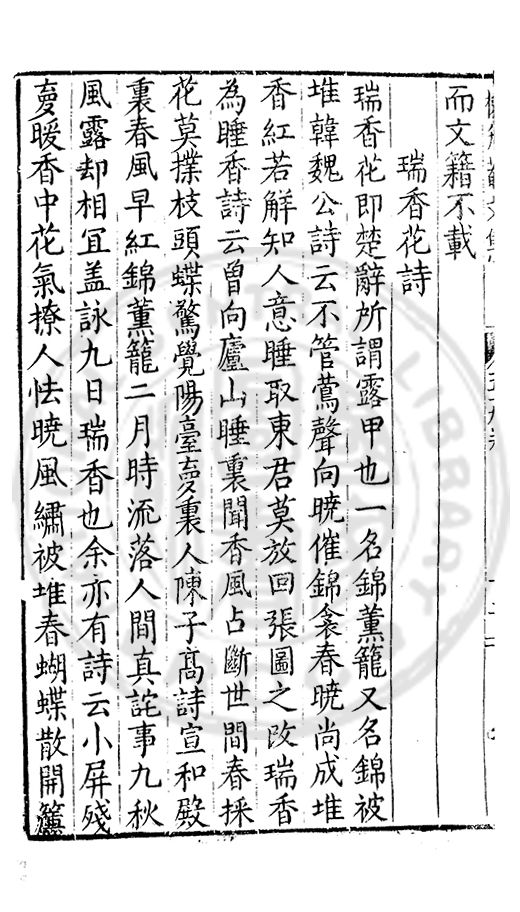 而文籍不載
瑞香花詩
瑞香花即楚辭所謂露甲也一名錦薰籠又名錦被
堆韓魏公詩云不管鶯聲向曉催錦衾春曉尚成堆
香紅若解知人意睡取東君莫放回張圖之改瑞香
為睡香詩云曾向廬山睡裏聞香風占斷世間春採
花莫撲枝頭蝶驚覺陽臺夢裏人陳子髙詩宣和殿
裏春風早紅錦薰籠二月時流落人間真詫事九秋
風露却相冝盖詠九日瑞香也余亦有詩云小屏殘
夢暖香中花氣撩人怯曉風繡被堆春蝴蝶散開籠